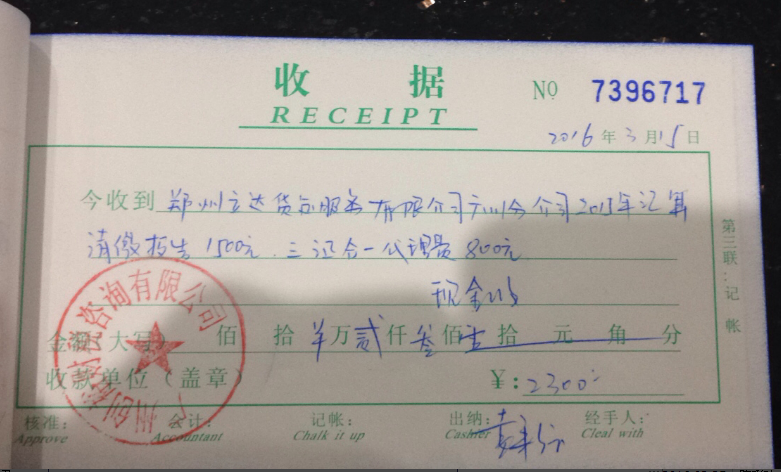 收 据
RECEIPT
NO 7396717
2016年3月15日
今收到 郑州立达货运服务有限公司广州分公司2015年汇算
清缴报告1500元.三证合一代理费800元
现金收
金额(大写) 佰 拾 羊万贰仟叁佰 拾 元 角 分
收款单位(盖章) ¥:2300
核准: 会计: 记帐: 出纳: 经手人:
Approve Accountant Chalk it up Cashier Cleal with
第三联:记帐
财税咨询有限公司